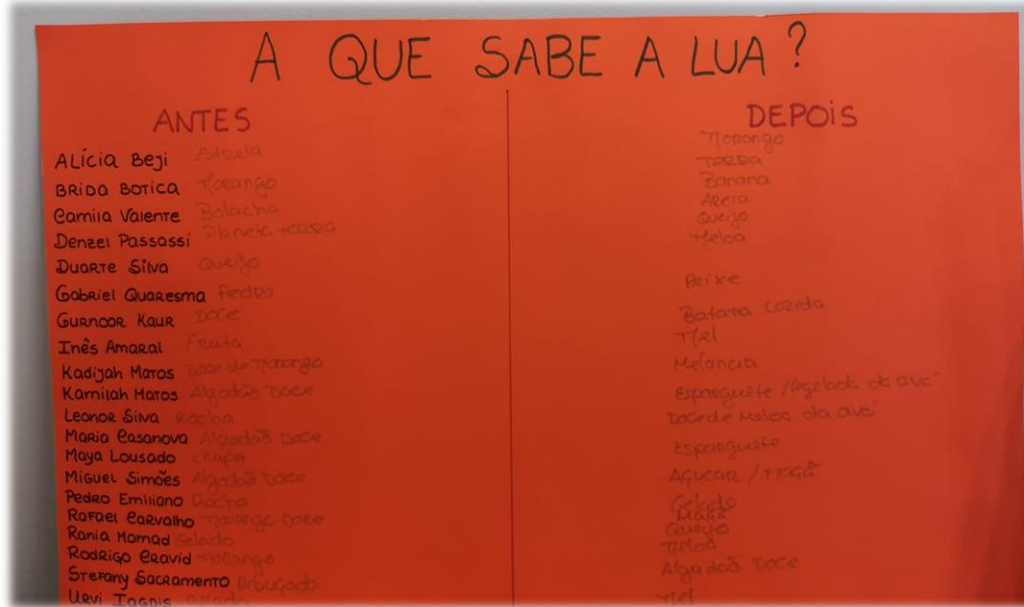 A QUE SABE A LUA?
ANTES
ALÍCIA Beji Estrela
BRIDA BOTICA Morango
Camila Valente Bolacha
Denzel Passassi Planeta terra
Duarte Silva Queijo
Gabriel Quaresma Pedra
GURNOOR KAUR Doce
Inês Amaral Fruta
Kadijah Matos Doce de Morango
Kamilah Matos Algodão Doce
Leonor Silva Rocha
Maria Casanova Algodão Doce
Maya Lousado
Miguel Simões Algodão Doce
Pedro Emiliano Rocha
Rafael Carvalho Morango Doce
Rania Momad Gelado
Rodrigo Cravid Morango
Stefany Sacramento Rebuçado
Urvi
DEPOIS
Morango
Terra
Banana
Areia
Queijo
Meloa
Peixe
Batata cozida
Mel
Melancia
Esparguete / da avó
Doce de Meloa da avó
Esparguete
Açucar / Maçã
Gelado
Maçã
Queijo
Meloa
Algodão Doce
Mel